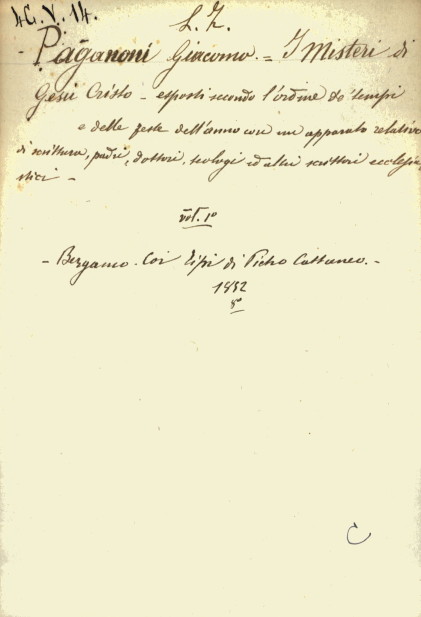 4G. V. 14.
L. Z.
- Paganoni Giacomo. = I Misteri di
Gesù Cristo - esposti secondo l'ordine de' tempi
e delle feste dell'anno con un apparato relativo
di scrittura, padri, dottori, teologi ed altri scrittori ecclesia,
stici -
vol. 1º
- Bergamo. Coi Tipi di Pietro Cattaneo. -
1832
8º
C